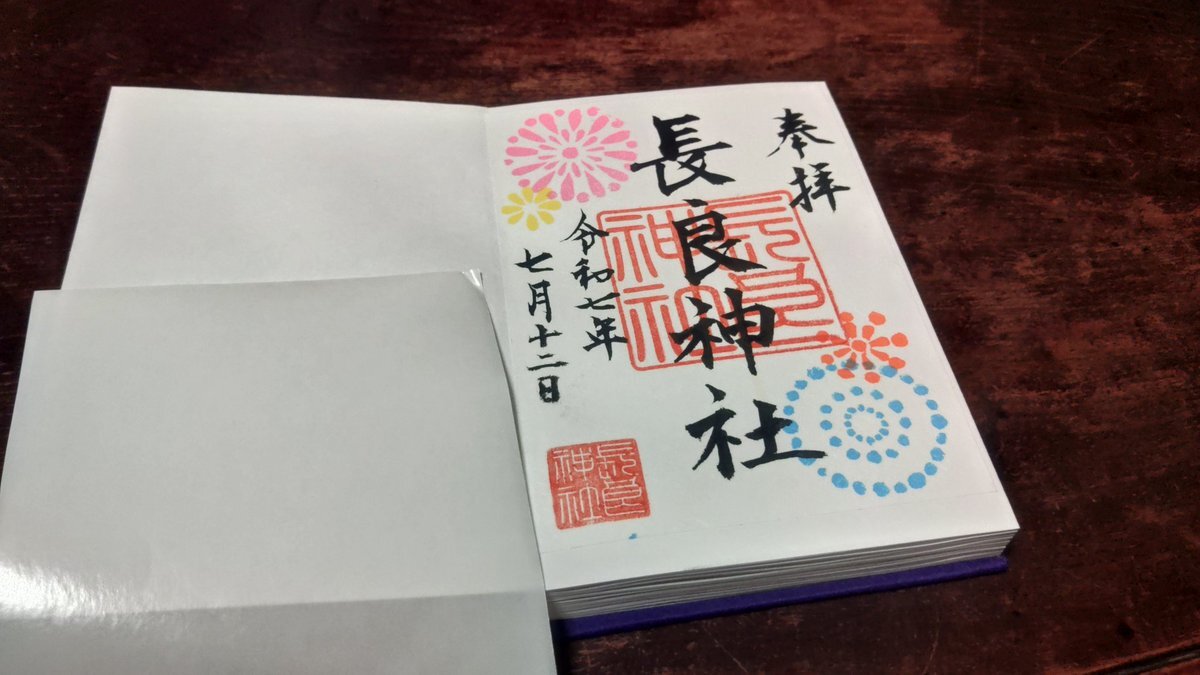 奉拝
長良神社
長良神社
令和七年
七月十二日
長良神社